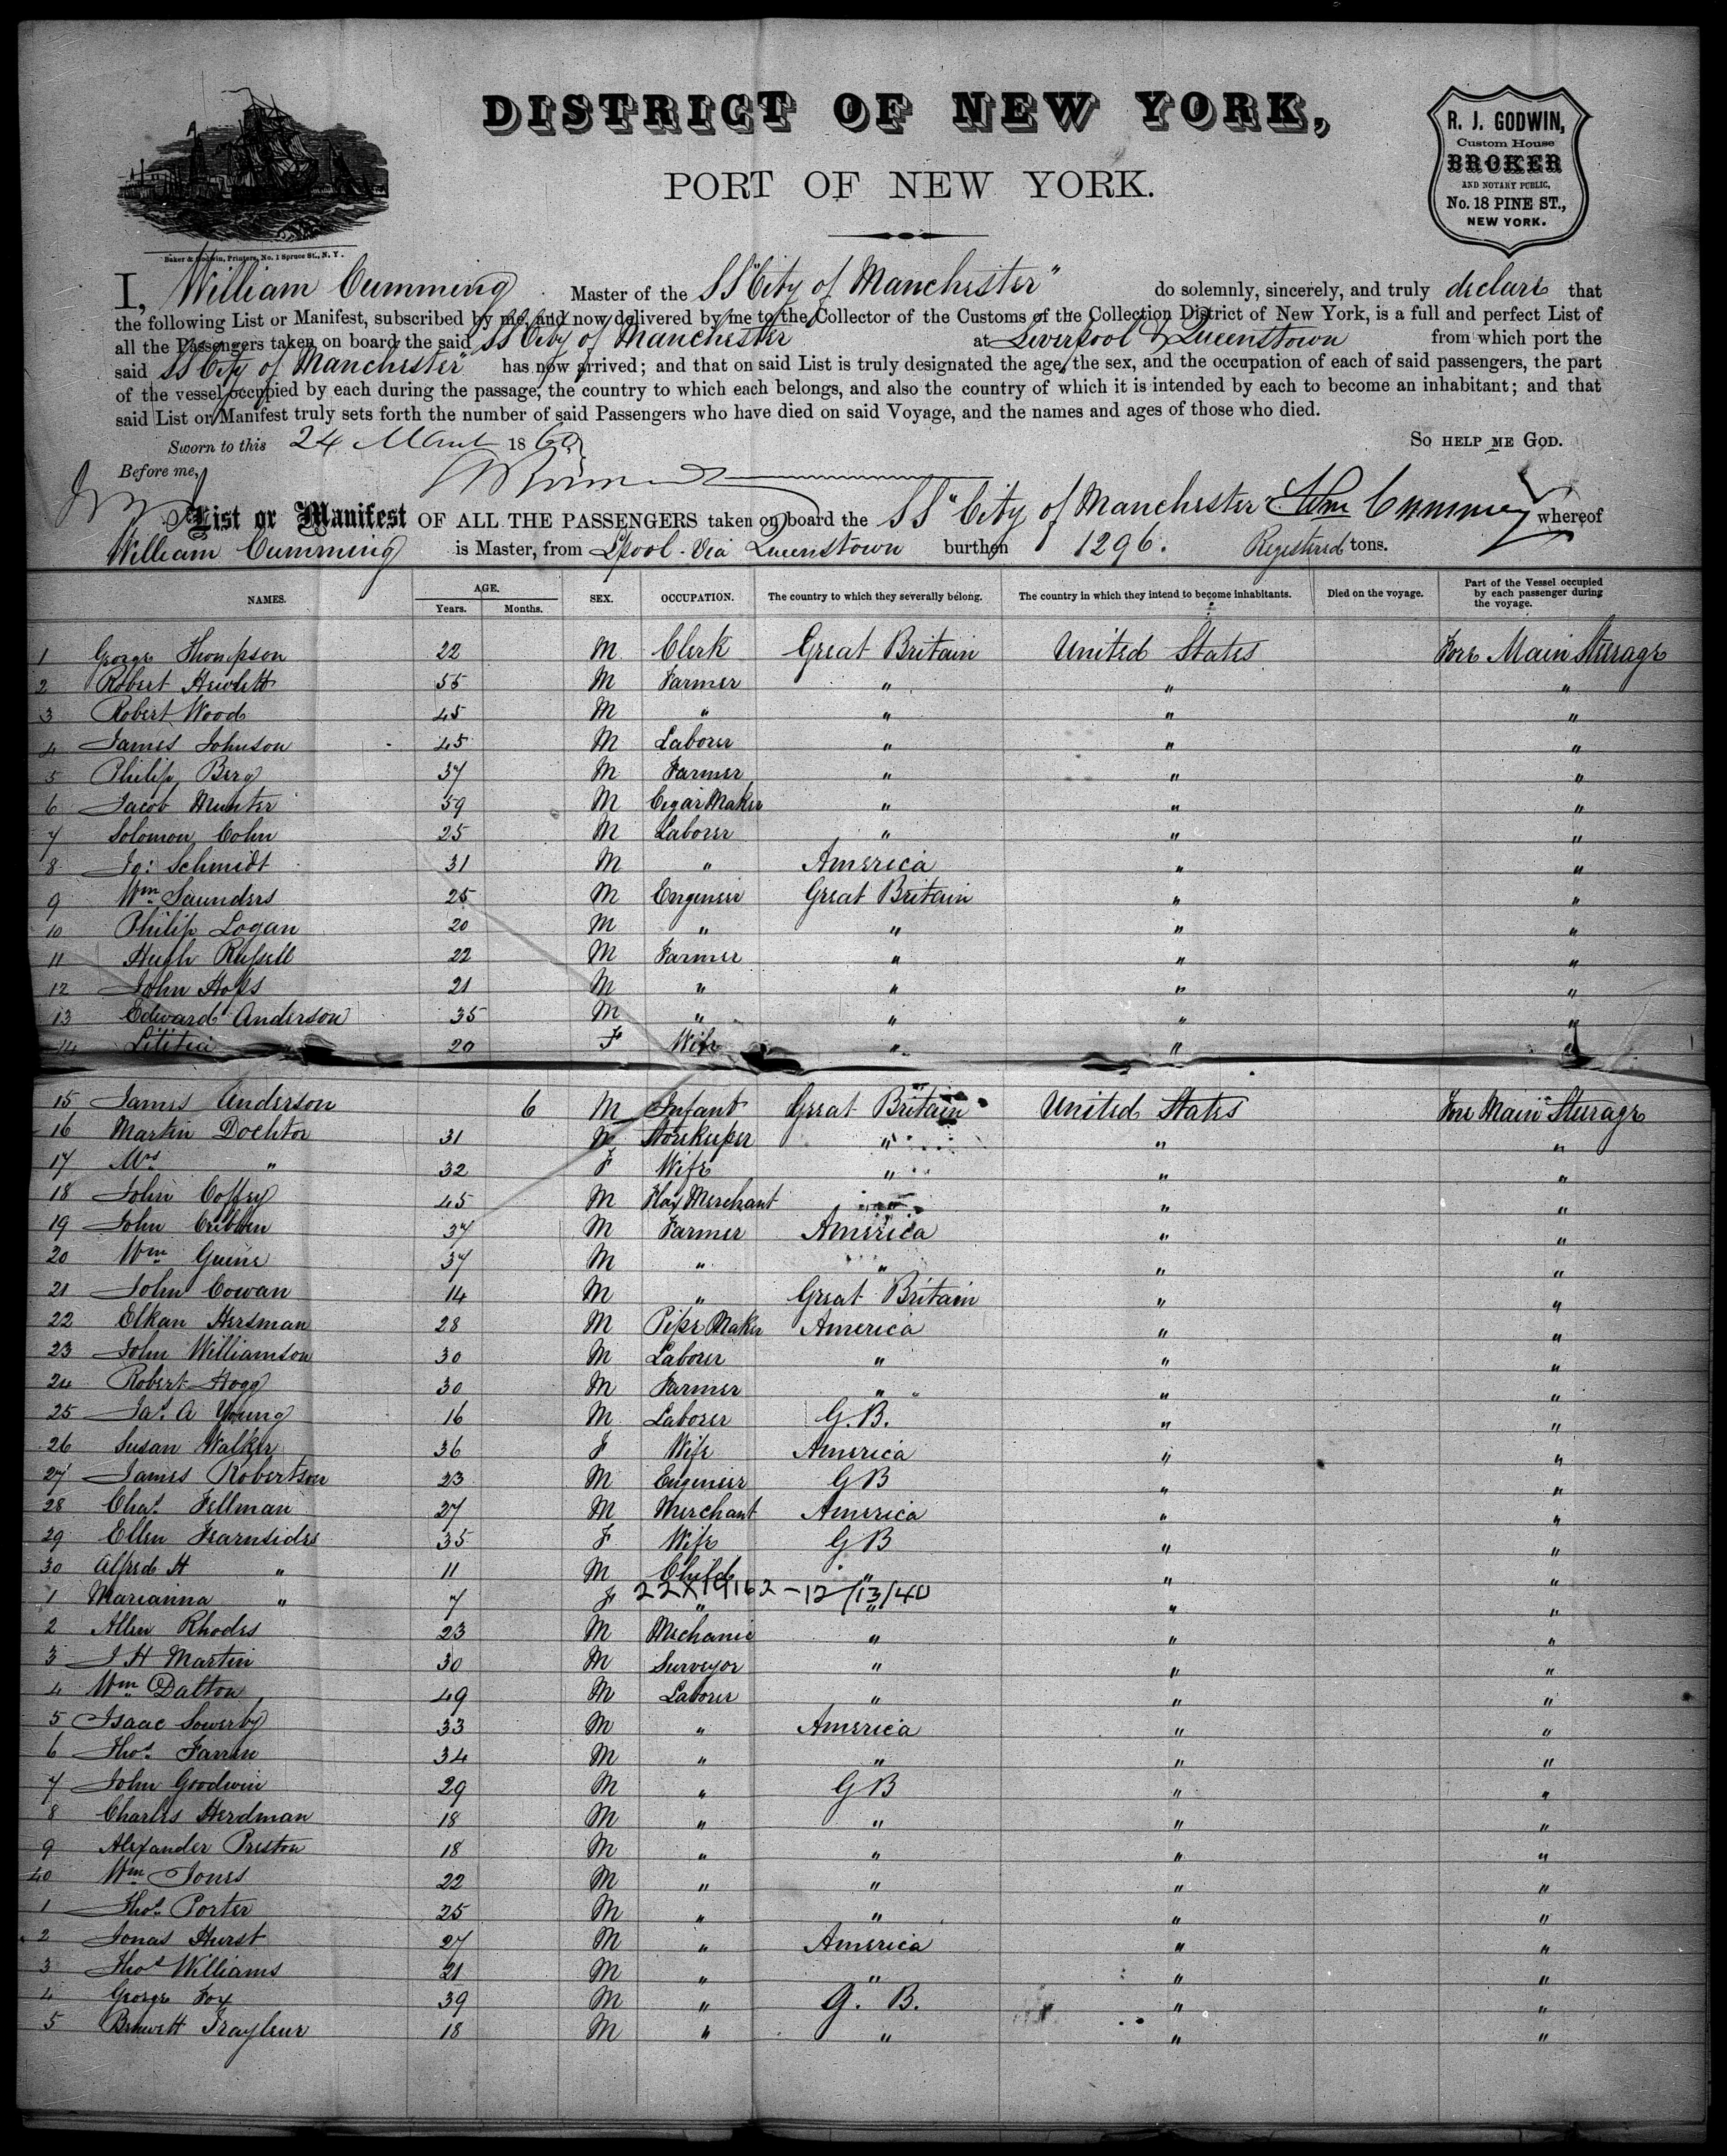 DISTRICT OF NEW YORK,
PORT OF NEW YORK.
R. J. GODWIN,
Custom House
BROKER
AND NOTARY PUBLIC,
No. 18 PINE ST.,
NEW YORK.
Baker & Godwin, Printers, No. 1 Spruce St., N. Y.
I, William Cumming Master of the SS "City of Manchester" do solemnly, sincerely, and truly declare that
the following List or Manifest, subscribed by me, and now delivered by me to the Collector of the Customs of the Collection District of New York, is a full and perfect List of
all the Passengers taken on board the said SS City of Manchester at Liverpool & Queenstown from which port the
said SS City of Manchester" has now arrived; and that on said List is truly designated the age, the sex, and the occupation of each of said passengers, the part
of the vessel occupied by each during the passage, the country to which each belongs, and also the country of which it is intended by each to become an inhabitant; and that
said List or Manifest truly sets forth the number of said Passengers who have died on said Voyage, and the names and ages of those who died.
Sworn to this 24 1860 SO HELP ME GOD.
Before me,
List or Manifest OF ALL THE PASSENGERS taken on board the SS "City of Manchester" Wm Cumming whereof
William Cumming is Master, from Lpool - Via Queenstown burthen 1296. Registered tons.
NAMES. AGE. Years. Months. SEX. OCCUPATION. The country to which they severally belong. The country in which they intend to become inhabitants. Died on the voyage. Part of the Vessel occupied by each passenger during the voyage.
1 George Thompson 22 M Clerk Great Britain United States Fore Main Steerage
2 Robert Hewlett 55 M Farmer " " "
3 Robert Wood 45 M " " " "
4 James Johnson 45 M Laborer " " "
5 Philip Berg 37 M Farmer " " "
6 Jacob Munter 59 M Cigar Maker " " "
7 Solomon Cohn 25 M Laborer " " "
8 Jo: Schmidt 31 M " America " "
9 Wm Saunders 25 M Engineer Great Britain " "
10 Philip Logan 20 M " " " "
11 Hugh Russell 22 M Farmer " " "
12 John Hoss 21 M " " " "
13 Edward Anderson 35 M " " " "
14 Lititia 20 F Wife " " "
15 James Anderson 6 M Infant Great Britain United States Fore Main Steerage
16 Martin Dochtor 31 M Storekeeper " " "
17 Mrs " 32 F Wife " " "
18 John Coffey 45 M Merchant " " "
19 John Cribben 37 M Farmer America " "
20 Wm 37 M " " " "
21 John Cowan 14 M " Great Britain " "
22 Elkan Hersman 28 M Pipe Maker America " "
23 John Williamson 30 M Laborer " " "
24 Robert Hogg 30 M Farmer " " "
25 Jas. A Young 16 M Laborer G.B. " "
26 Susan Walker 36 F Wife America " "
27 James Robertson 23 M Engineer G B " "
28 Chas. Fellman 27 M Merchant America " "
29 Ellen Fearnsides 35 F Wife G B " "
30 Alfred H " 11 M Child " " "
22X19162-12/13/40
1 Marianna " 7 F " " " "
2 Allen Rhodes 23 M Mechanic " " "
3 J H Martin 30 M Surveyor " " "
4 Wm Dalton 49 M Laborer " " "
5 Isaac Sowerby 33 M " America " "
6 Thos. Farren 34 M " " " "
7 John Goodwin 29 M " G B " "
8 Charles Herdman 18 M " " " "
9 Alexander Preston 18 M " " " "
40 Wm Jones 22 M " " " "
1 Thos. Porter 25 M " " " "
2 Jonas Hurst 27 M " America " "
3 Thos Williams 21 M " " " "
4 George Fox 39 M " G. B. " "
5 18 M " " " "